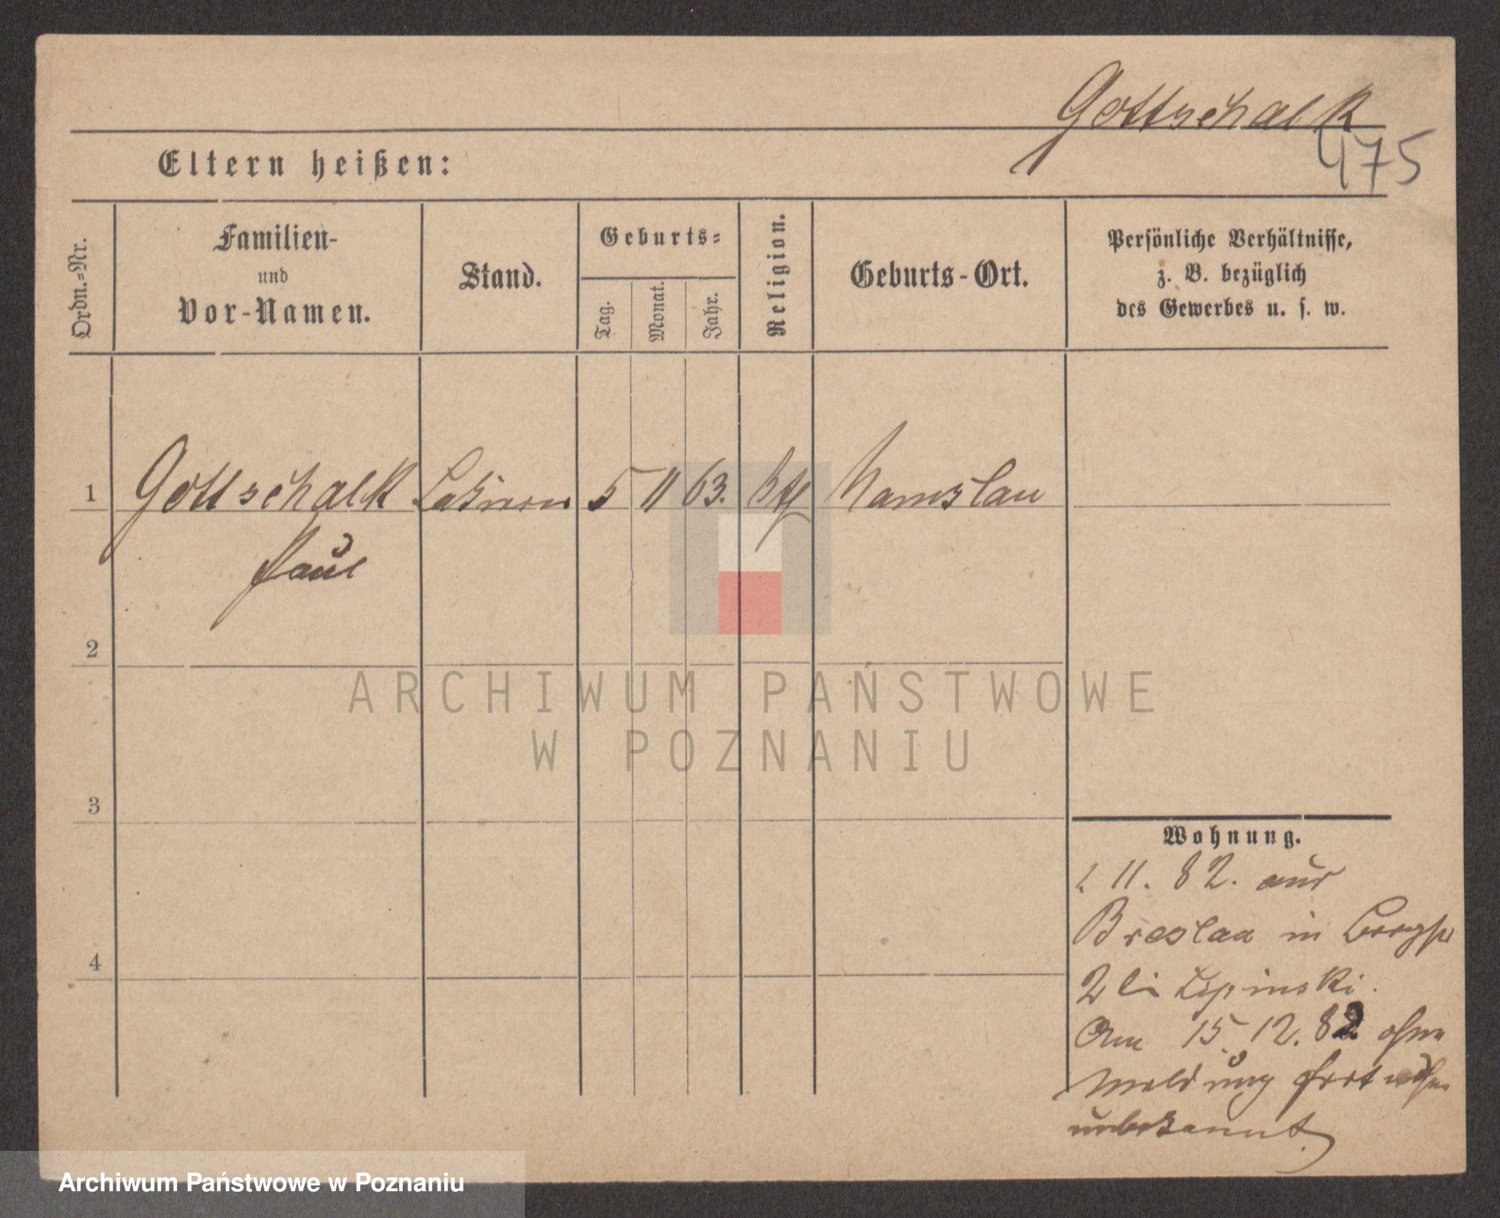 Gottschalk
475
Eltern heißen:
Ordn.-Nr.
Familien-
und
Vor-Namen.
Stand.
Geburts-
Tag.
Monat.
Jahr.
Religion.
Geburts-Ort.
Persönliche Verhältnisse,
z. B. bezüglich
des Gewerbes u. s. w.
1
Gottschalk
Paul
5
11
63.
ktl
Namslau
2
3
4
Wohnung.
11. 82. aus
Breslau in
2 bei Lipinski.
Am 15. 12. 82 ohne
Meldung fort wohin
unbekannt.
ARCHIWUM PAŃSTWOWE
W POZNANIU
Archiwum Państwowe w Poznaniu